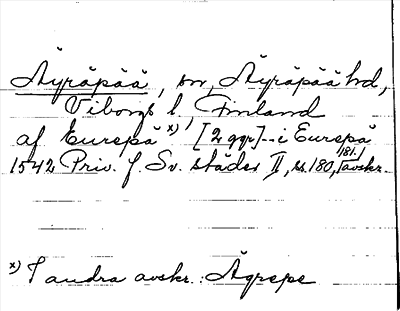 Äyräpää, sn, Äyräpää hd,
Viborgs l, Finland
af Eurepä x) [2 ggr]--i Eurepä
1542 Priv. f. Sv. städer II, s. 180, 181. avskr.
x) I andra avskr.: Ägrepe